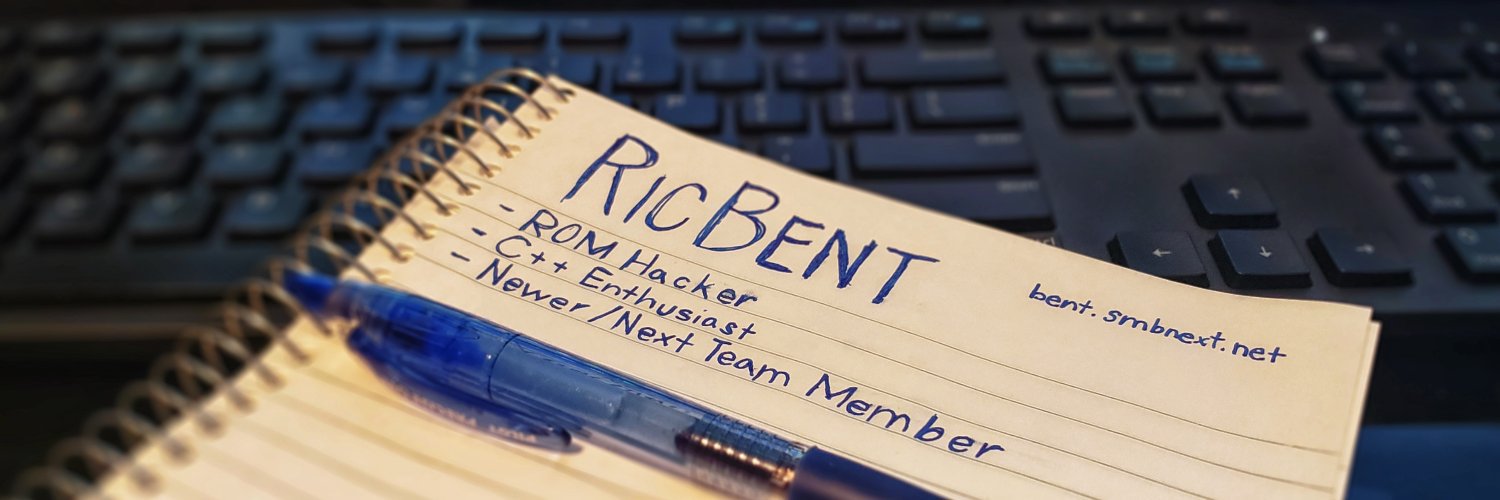 RICBENT
- ROM Hacker
- C++ Enthusiast
- Newer/Next Team Member
bent.smbnext.net